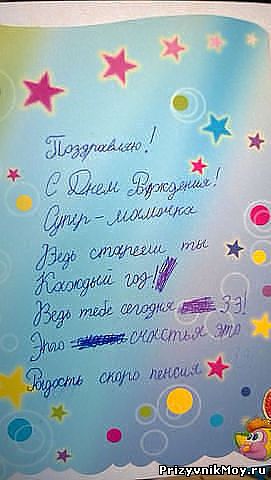 Поздравляю!
С Днем Рждения!
Супер-мамочка
Ведь старееш ты
Каждый год!
Ведь тебе сегодня 39!
Это счастья это
Радость скоро пенсия
PrizyvnikMoy.ru